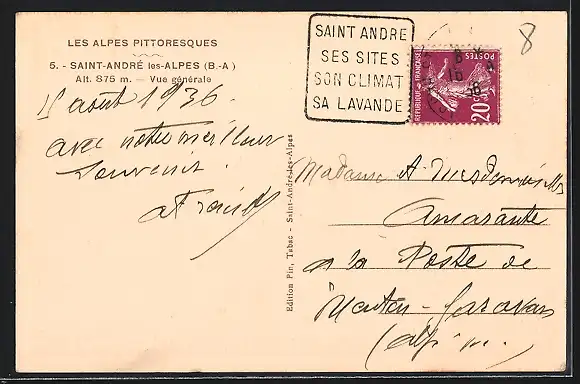 LES ALPES PITTORESQUES
5. - SAINT-ANDRÉ les-ALPES (B.-A)
Alt. 875 m. - Vue générale
août 1936.
avec notre meilleur
souvenir.
SAINT ANDRE
SES SITES
SON CLIMAT
SA LAVANDE
POSTES
REPUBLIQUE FRANÇAISE
20c
8
Edition Pin, Tabac - Saint-André-les-Alpes
Madame A. Mesdemoiselles
Amarante
a la Poste de
Menton-Garavan
(Alp. m.